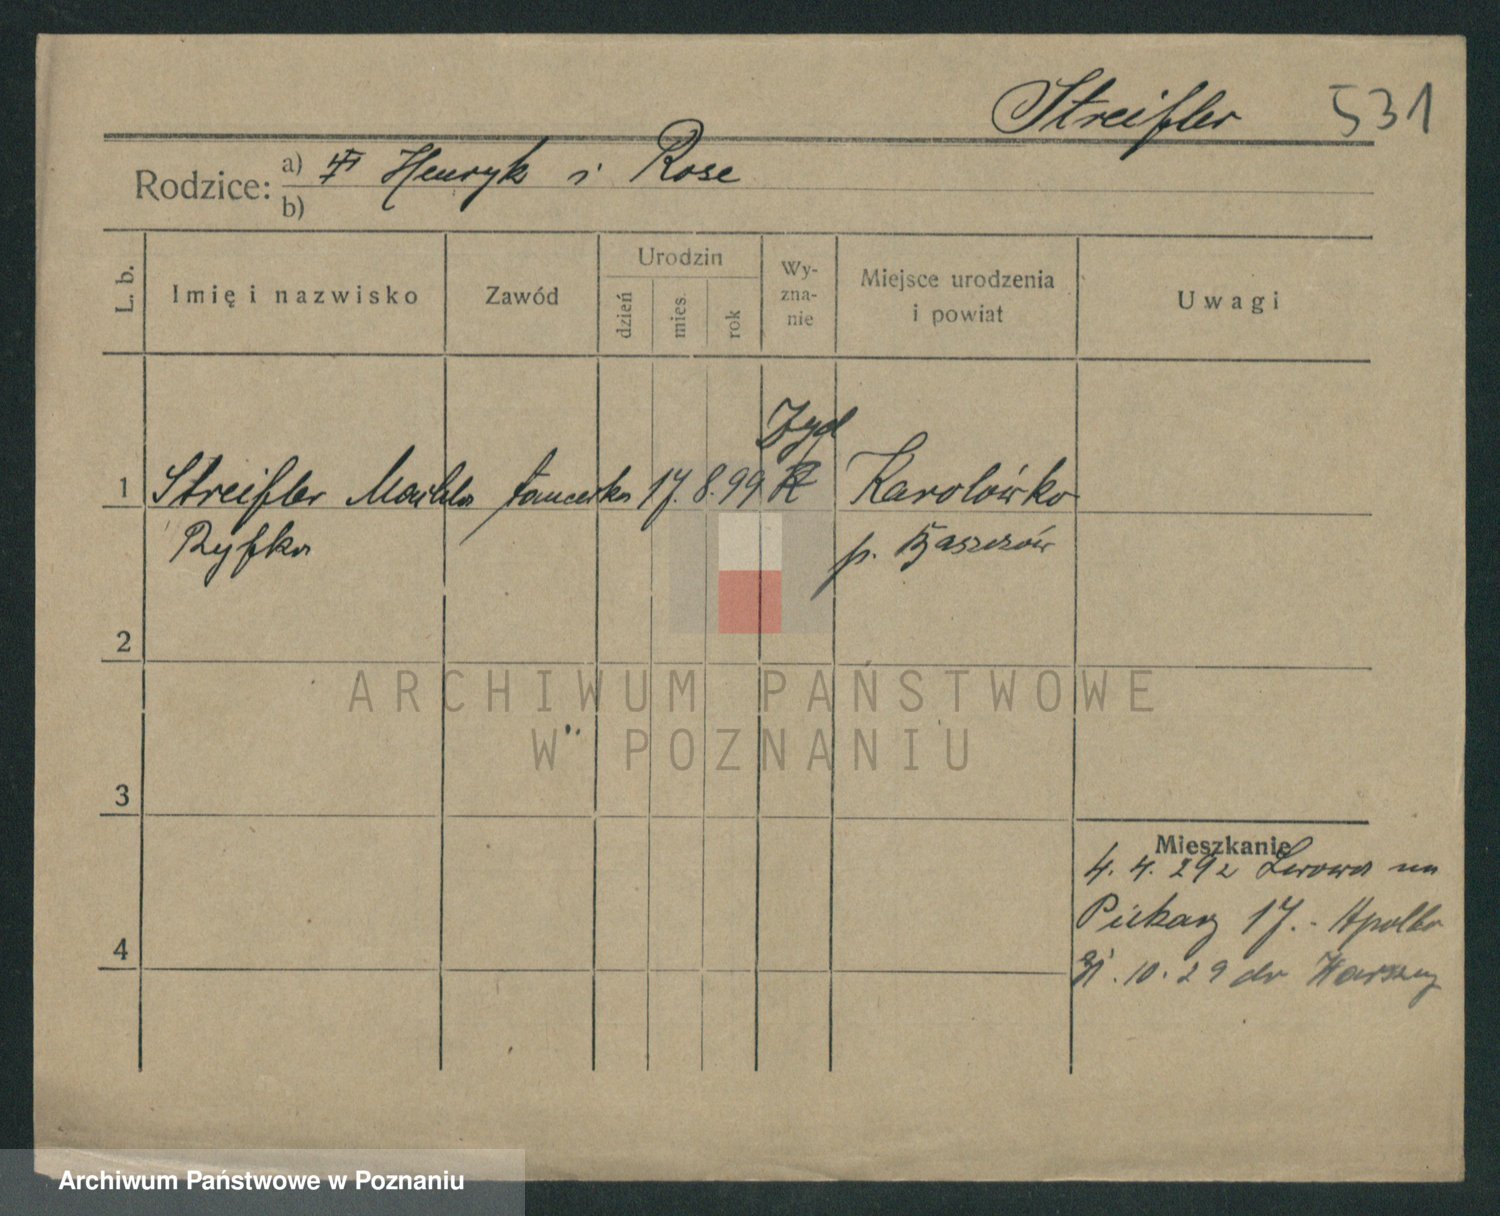 Streifler 531
Rodzice: a) Henryk i Rose
b)
L. b. Imię i nazwisko Zawód Urodzin dzień mies. rok Wy-zna-nie Miejsce urodzenia i powiat Uwagi
Żyd
1 Streifler tancerka 17. 8. 99 Karolówka
Ryfka p.
2
ARCHIWUM PAŃSTWOWE
W POZNANIU
3
Mieszkanie
4. 4. 29 z Lwowa na
Piekary 17. - Apollo
4
10. 29 do Warszawy
Archiwum Państwowe w Poznaniu